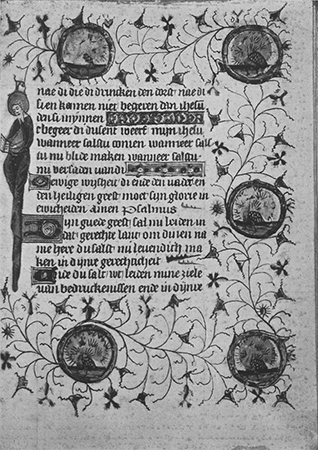 nae di die di drincken den dorst nae di
sien kennen niet begeren dan ihesu
dorsi mynnen
c begeer di dusent werf mijn ihesu
wanneer salstu comen wanneer salt
tu mi blide maken wanneer salstu
mi versaden van di
ewige wijsheit di ende den vader en
den heiligen geest moet sijn glorie in
ewicheden amen psalmus
ijn guede geest sal mi leiden in
dat gerechte lant om dinen na
me here du salste mi levendich ma
ken in dijnre gerechticheit
ue du salt wt leiden mine ziele
van bedruckenissen ende in dijnre